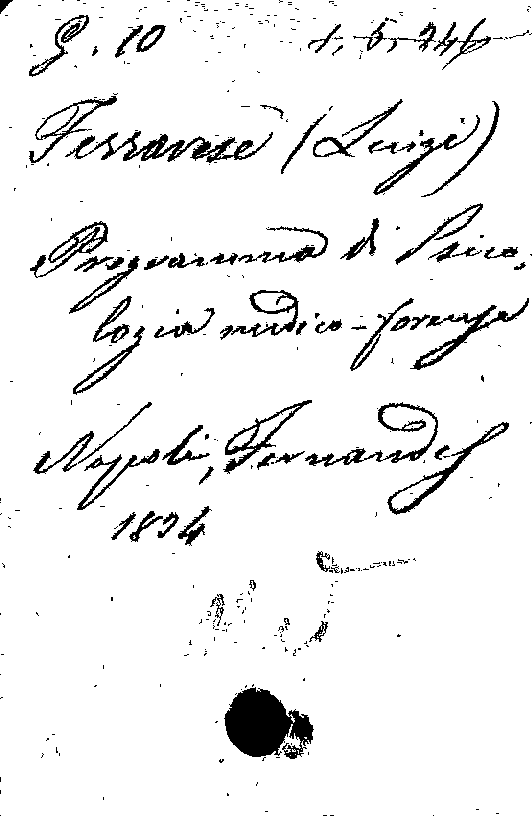 G. 10 1, 5, 246
Ferrarese (Luigi)
Programma di Psico-
logia medico-forense
Napoli, Fernandes
1834